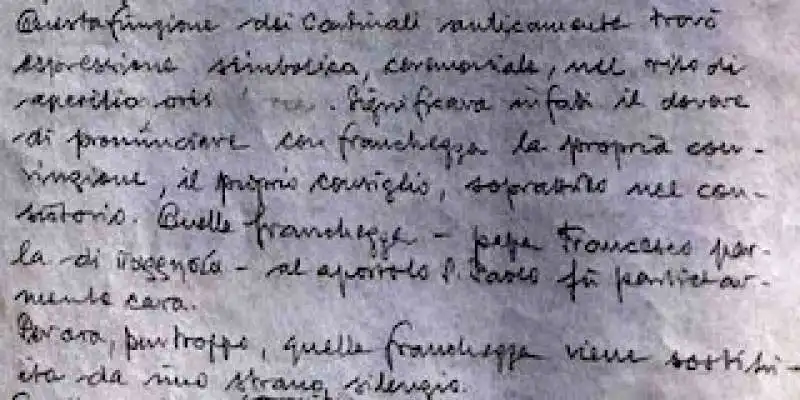 Questa funzione dei Cardinali anticamente trovò
espressione simbolica, ceremoniale, nel rito di
aperitio oris. Significava infatti il dovere
di pronunciare con franchezza la propria con-
vinzione, il proprio consiglio, soprattutto nel con-
sistorio. Quella franchezza - papa Francesco par-
la di παρρησία - al apostolo S. Paolo fu particolar-
mente cara.
Per ora, purtroppo, quella franchezza viene sostitu-
ita da uno strano silenzio.